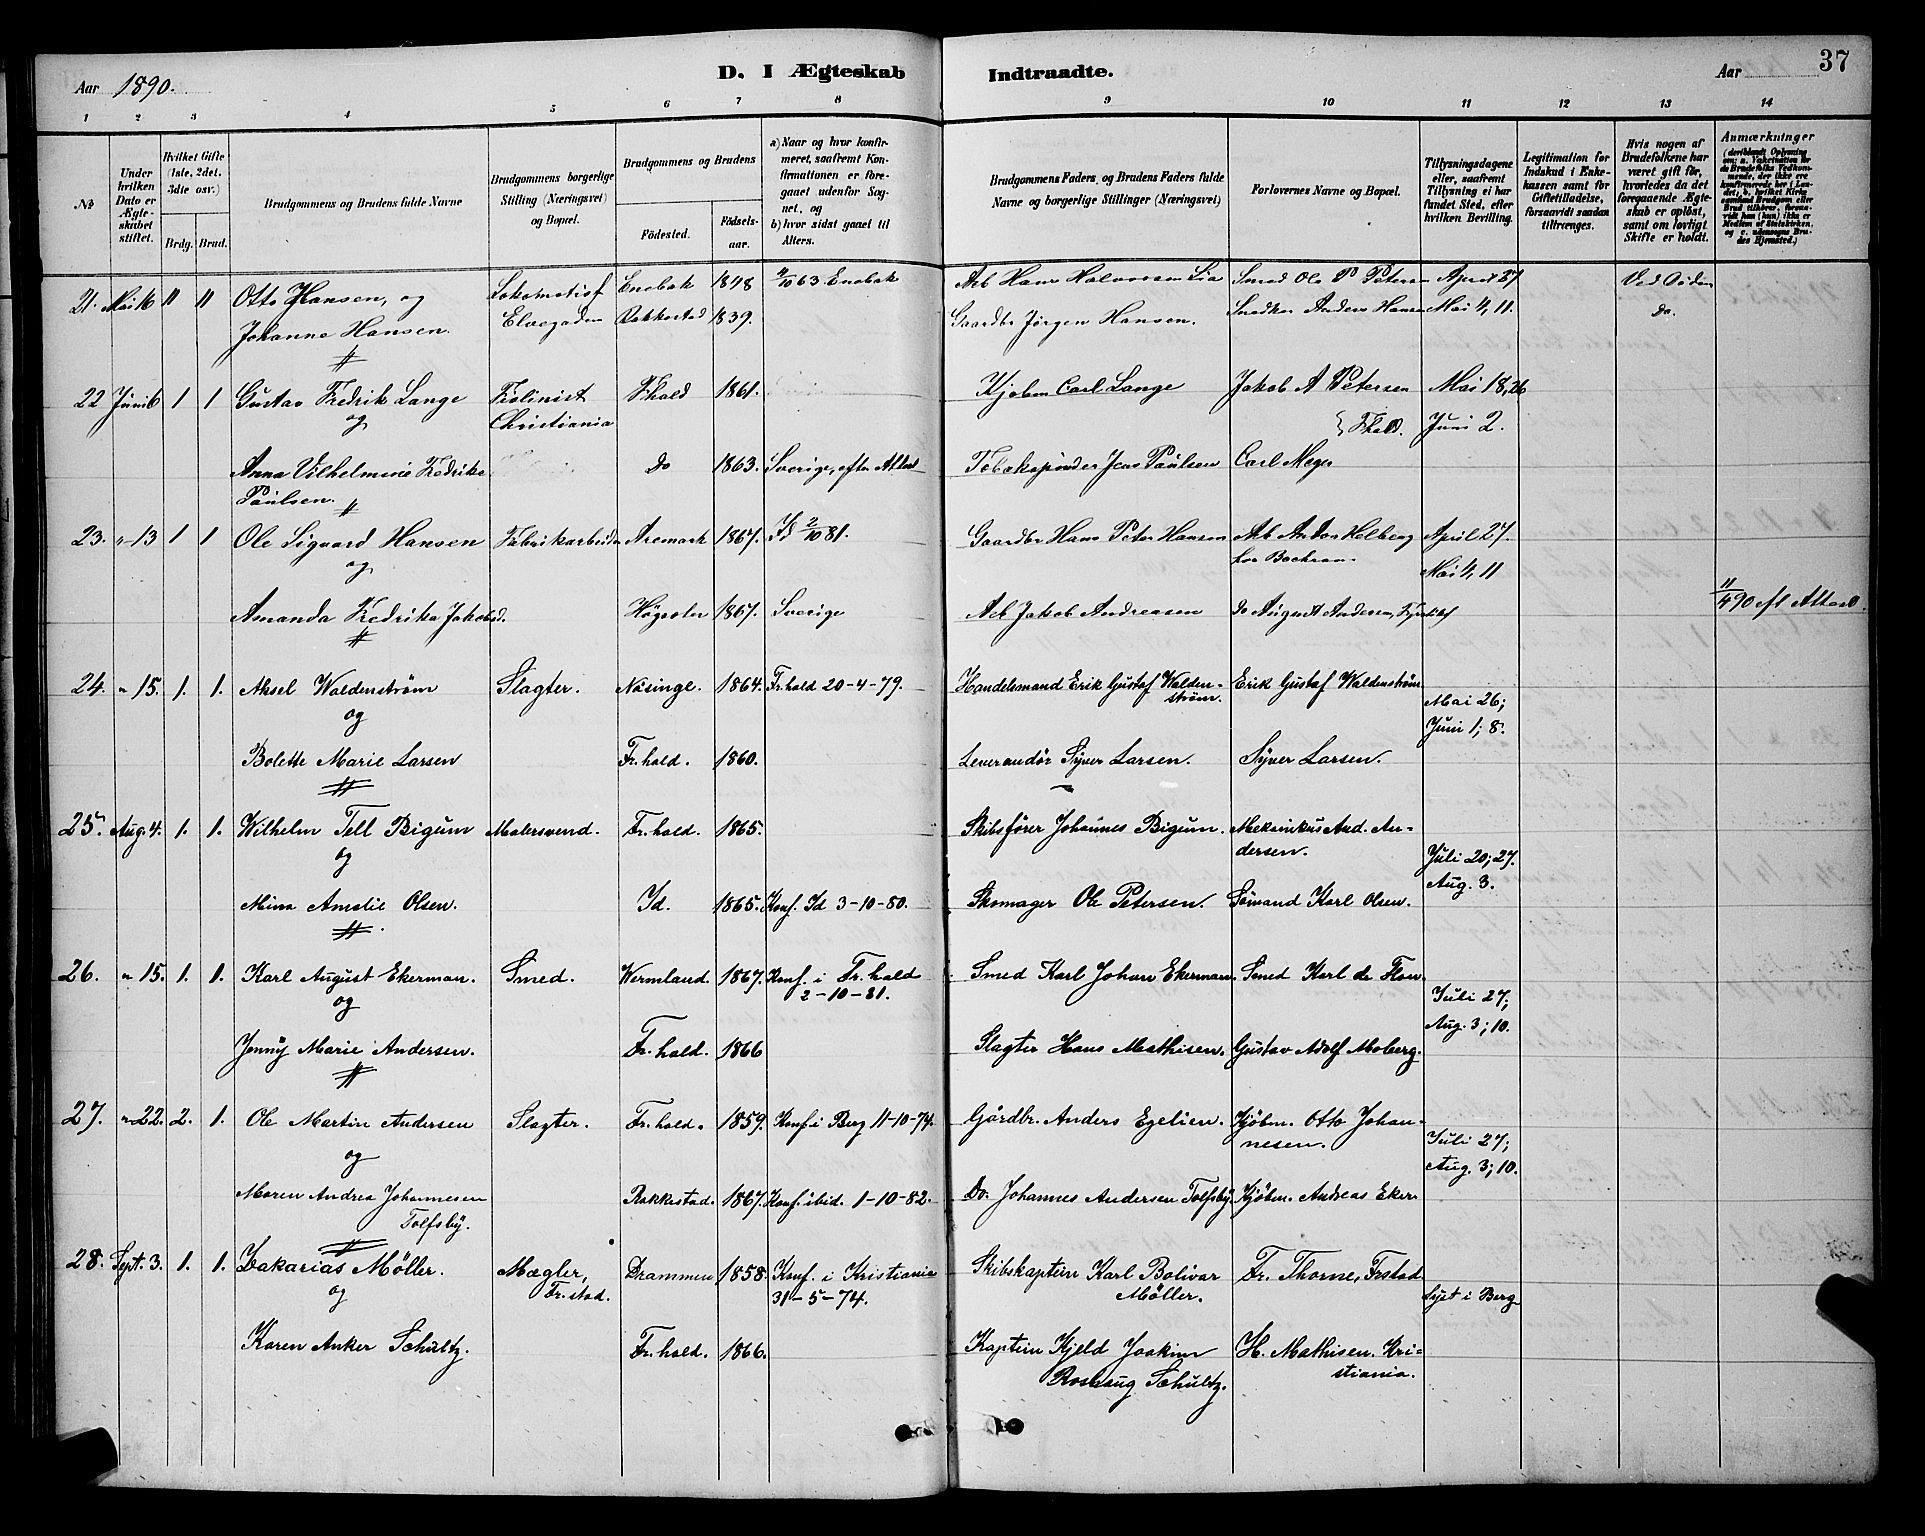 Aar 1890.
D. I Ægteskab Indtraadte.
Aar
37
1 2 3 4 5 6 7 8 9 10 11 12 13 14
№
Under hvilken Dato er Ægteskabet stiftet.
Hvilket Gifte (1ste, 2det, 3die osv.)
Brdg. Brud.
Brudgommens og Brudens fulde Navne
Brudgommens borgerlige Stilling (Næringsvei) og Bopæl.
Brudgommens og Brudens
Födested. Födsels-aar.
a) Naar og hvor konfirmeret, saafremt Konfirmationen er foregaaet udenför Sognet, og
b) hvor sidst gaaet til Alters.
Brudgommens Faders, og Brudens Faders fulde Navne og borgerlige Stillinger (Næringsvei)
Forlovernes Navne og Bopæl.
Tillysningsdagene eller, saafremt Tillysning ei har fundet Sted, efter hvilken Bevilling.
Legitimation for Indskud i Enkekassen samt for Giftetilladelse, forsaavidt saadan tiltrænges.
Hvis nogen af Brudefolkene har været gift før, hvorledes da det foregaaende Ægteskab er oplöst, samt om lovligt Skifte er holdt.
Anmærkninger
21. Mai 16 II II Otto Hansen, og Lokomotivf Enebak 1848 4/10 63 Enebak Arb Hans Halvorsen Lia Smed Ole P Peters April 27 Ved Döden
Johanne Hansen. Elvegaden Rakkestad 1839. Gaardbr Jørgen Hansen. Snedker Anders Hansen Mai 4, 11. Do.
22 Juni 6 1 1 Gustav Fredrik Lange Fhald 1861. Kjøbm Carl Lange Jakob A Petersen Mai 18, 26
og Christiania Fhald. Juni 2.
Anna Vilhelmine Fredrike Do 1863. Sverige, efter Attest Jens Paulsen Carl Meyer
Paulsen.
23. " 13 1 1 Ole Sigvard Hansen Fabrikarbeider Aremark 1867. Id 2/10 81. Gaardbr Hans Peter Hansen Arb Anton Helberg April 27.
og Mai 4, 11
Amanda Fredrika Jakobsd. 1867. Sverige Arb Jakob Andreasen do August Andersen, 11/4 90 efl Attest.
24. " 15. 1. 1. Aksel Waldenström Slagter. Näsinge. 1864. Fr.hald 20-4-79. Handelsmand Erik Gustaf Waldenström. Erik Gustaf Waldenström
og Mai 26; Juni 1; 8.
Bolette Marie Larsen Fr.hald. 1860. Leverandør Syver Larsen. Syver Larsen.
25. Aug. 4. 1. 1. Wilhelm Tell Bigum Malersvend. Fr.hald. 1865. Skibsfører Johannes Bigum. Mekanikus And. Andersen.
og Juli 20; 27. Aug. 3.
Mina Amalie Olsen. Id. 1865. Konf. Id 3-10-80. Skomager Ole Petersen. Sömand Karl Olsen.
26. " 15. 1. 1. Karl August Ekerman. Smed. Wermland. 1867. Konf. i Fr.hald 2-10-81. Smed Karl Johan Ekerman. Smed Karl de Flon
og Juli 27; Aug. 3; 10.
Jenny Marie Andersen. Fr.hald. 1866 Slagter Hans Mathisen. Gustav Adolf Moberg.
27. " 22. 2. 1. Ole Martin Andersen Slagter. Fr.hald. 1859. Konf. i Berg 11-10-74. Gårdbr. Anders Egelien. Kjöbm. Otto Johannesen.
og Juli 27; Aug. 3; 10.
Maren Andrea Johannesen Rakkestad. 1867. Konf. ibid. 1-10-82. Do. Johannes Andersen Tolfsby. Kjöbm. Andreas Eker
Tolfsby.
28. Sept. 3. 1. 1. Zakarias Möller. Mægler, Fr.stad. Drammen 1858. Konf. i Kristiania 31-5-74. Skibskaptein Karl Bolivar Möller. Fr. Thorne, Frstad
og Lyst i Berg
Karen Anker Schultz. Fr.hald. 1866. Kaptein Kjeld Joakim Schultz. H. Mathisen. Kristiania.